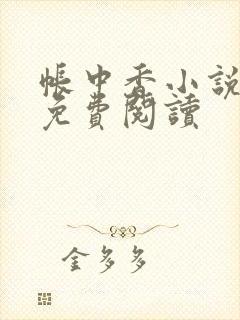 帳中香小說
免費閱讀
金多多